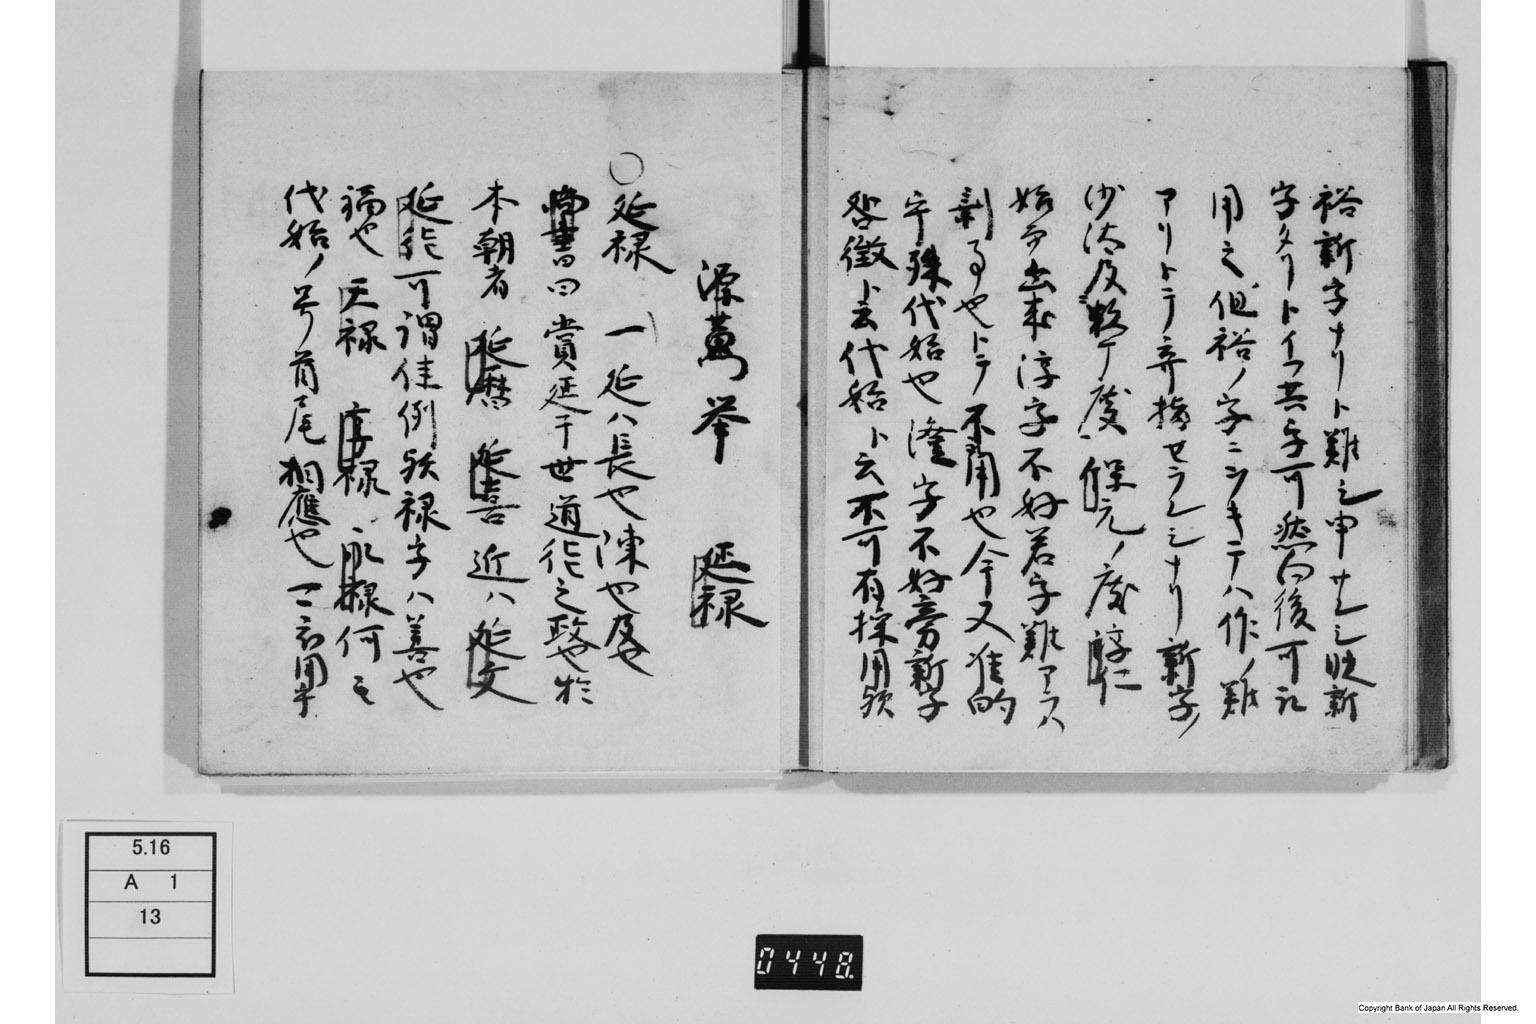 裕新字ナリト難之申サレシ時新
字タリトイフ共字可然ハ向後可被
用之但裕ノ字ニツキテハ作ノ難
アリトテ弃捐セラレシナリ新字ノ
沙汰及数ケ度保元ノ度諄仁
始而出来淳字不好若字難アラハ
剰ル事也トテ不用也今又准的
乎殊代始也隆字不好旁新字
咎徴ト云代始ト云不可有採用歟
源万挙 延禄
○延禄 一延ハ長也陳也及也
尚書曰賞延于世道徳之政也於
本朝者延暦延喜近ハ延文
延徳可謂佳例歟禄字ハ善也
福也天禄享禄永禄何モ
代始ノ号首尾相應也一二被用乎
5.16
A 1
13
0448.
Copyright Bank of Japan All Rights Reserved.